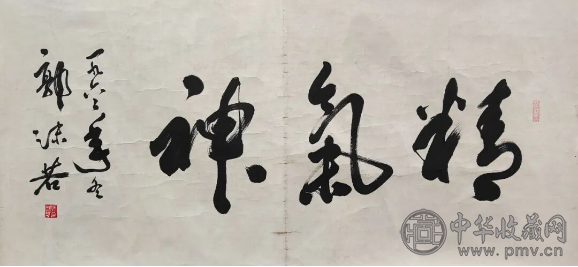 精氣神
一九六六年冬
郭沫若
中华收藏网
www.pmv.cn